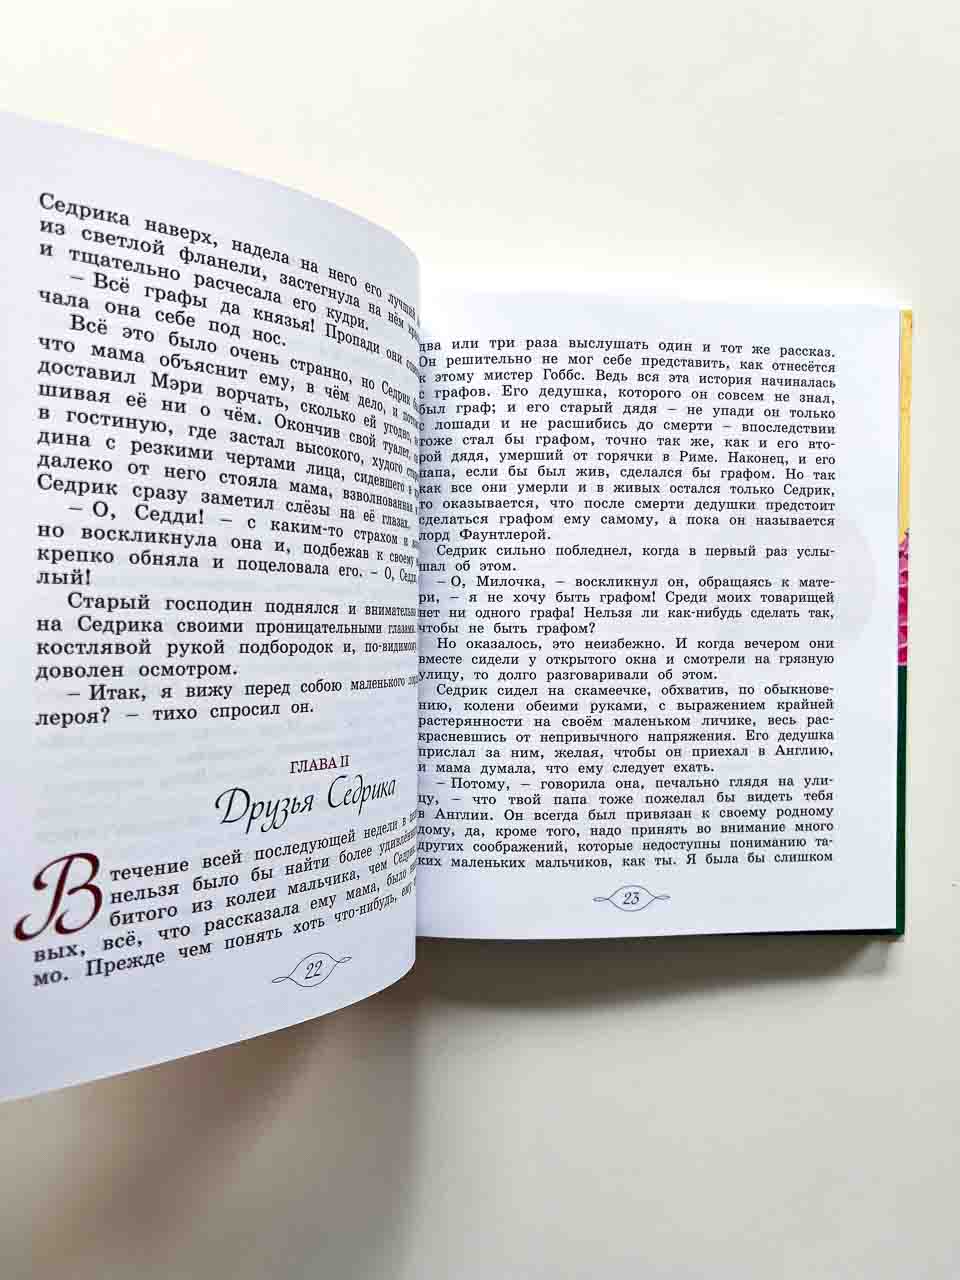 Седрика наверх, надела на него его лучший
из светлой фланели, застегнула на нём
и тщательно расчесала его кудри.
– Всё графы да князья! Пропади они
чала она себе под нос.
Всё это было очень странно, но Седрик
что мама объяснит ему, в чём дело, и
доставил Мэри ворчать, сколько ей угодно,
шивая её ни о чём. Окончив свой туалет,
в гостиную, где застал высокого, худого
дина с резкими чертами лица, сидевшего в
далеко от него стояла мама, взволнованная
Седрик сразу заметил слёзы на её глазах.
– О, Седди! – с каким-то страхом и
но воскликнула она и, подбежав к своему
крепко обняла и поцеловала его. – О, Седди,
лый!
Старый господин поднялся и внимательно
на Седрика своими проницательными глазами.
костлявой рукой подбородок и, по-видимому,
доволен осмотром.
– Итак, я вижу перед собою маленького
лероя? – тихо спросил он.
ГЛАВА II
Друзья Седрика
В течение всей последующей недели в
нельзя было бы найти более удивлённого
битого из колеи мальчика, чем Седрик.
вых, всё, что рассказала ему мама, было
мо. Прежде чем понять хоть что-нибудь, ему
22
два или три раза выслушать один и тот же рассказ.
Он решительно не мог себе представить, как отнесётся
к этому мистер Гоббс. Ведь вся эта история начиналась
с графов. Его дедушка, которого он совсем не знал,
был граф; и его старый дядя – не упади он только
с лошади и не расшибись до смерти – впоследствии
тоже стал бы графом, точно так же, как и его вто-
рой дядя, умерший от горячки в Риме. Наконец, и его
папа, если бы был жив, сделался бы графом. Но так
как все они умерли и в живых остался только Седрик,
то оказывается, что после смерти дедушки предстоит
сделаться графом ему самому, а пока он называется
лорд Фаунтлерой.
Седрик сильно побледнел, когда в первый раз услы-
шал об этом.
– О, Милочка, – воскликнул он, обращаясь к мате-
ри, – я не хочу быть графом! Среди моих товарищей
нет ни одного графа! Нельзя ли как-нибудь сделать так,
чтобы не быть графом?
Но оказалось, это неизбежно. И когда вечером они
вместе сидели у открытого окна и смотрели на грязную
улицу, то долго разговаривали об этом.
Седрик сидел на скамеечке, обхватив, по обыкнове-
нию, колени обеими руками, с выражением крайней
растерянности на своём маленьком личике, весь рас-
красневшись от непривычного напряжения. Его дедушка
прислал за ним, желая, чтобы он приехал в Англию,
и мама думала, что ему следует ехать.
– Потому, – говорила она, печально глядя на ули-
цу, – что твой папа тоже пожелал бы видеть тебя
в Англии. Он всегда был привязан к своему родному
дому, да, кроме того, надо принять во внимание много
других соображений, которые недоступны пониманию та-
ких маленьких мальчиков, как ты. Я была бы слишком
23